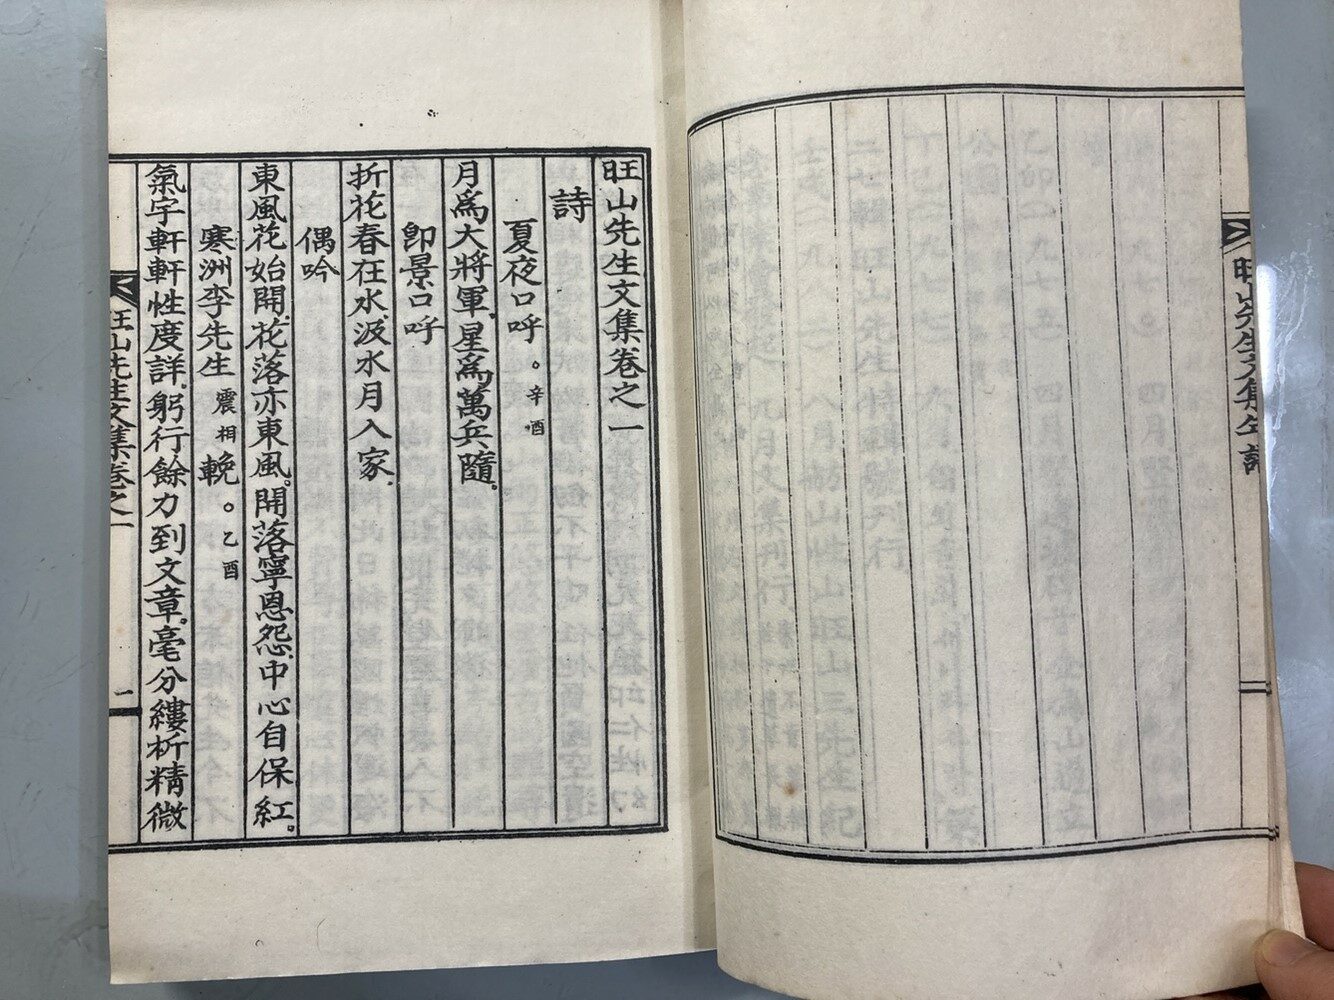 旺山先生文集年譜
旺山先生文集卷之一
詩
夏夜口呼。辛酉
月爲大將軍.星爲萬兵隨.
卽景口呼
折花春在水.汲水月入家.
偶吟
東風花始開.花落亦東風.開落寧恩怨.中心自保紅.
寒洲李先生震相輓。乙酉
氣宇軒軒性度詳.躬行餘力到文章.毫分縷析精微
旺山先生文集卷之一
二